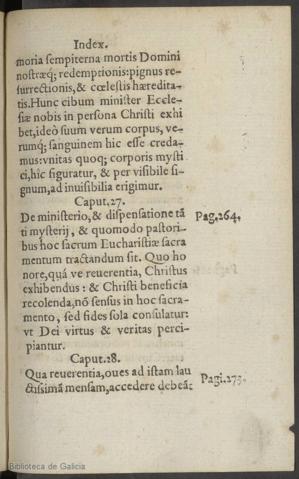 Index.
moria sempiterna mortis Domini
nostræq; redemptionis: pignus re-
surrectionis, & cœlestis hæredita-
tis. Hunc cibum minister Eccle-
siæ nobis in persona Christi exhi
bet, ideò suum verum corpus, ve-
rumq; sanguinem hic esse creda-
mus: vnitas quoq; corporis mysti
ci, hîc figuratur, & per visibile si-
gnum, ad inuisibilia erigimur.
Caput. 27.
De ministerio, & dispensatione tã Pag. 264.
ti mysterij, & quomodo pastori-
bus hoc sacrum Eucharistiæ sacra
mentum tractandum sit. Quo ho
nore, quá ve reuerentia, Christus
exhibendus: & Christi beneficia
recolenda, nõ sensus in hoc sacra-
mento, sed fides sola consulatur:
vt Dei virtus & veritas perci-
piantur.
Caput. 28.
Qua reuerentia, oues ad istam lau Pagi. 273.
ctissimã mensam, accedere debeãt
Biblioteca de Galicia